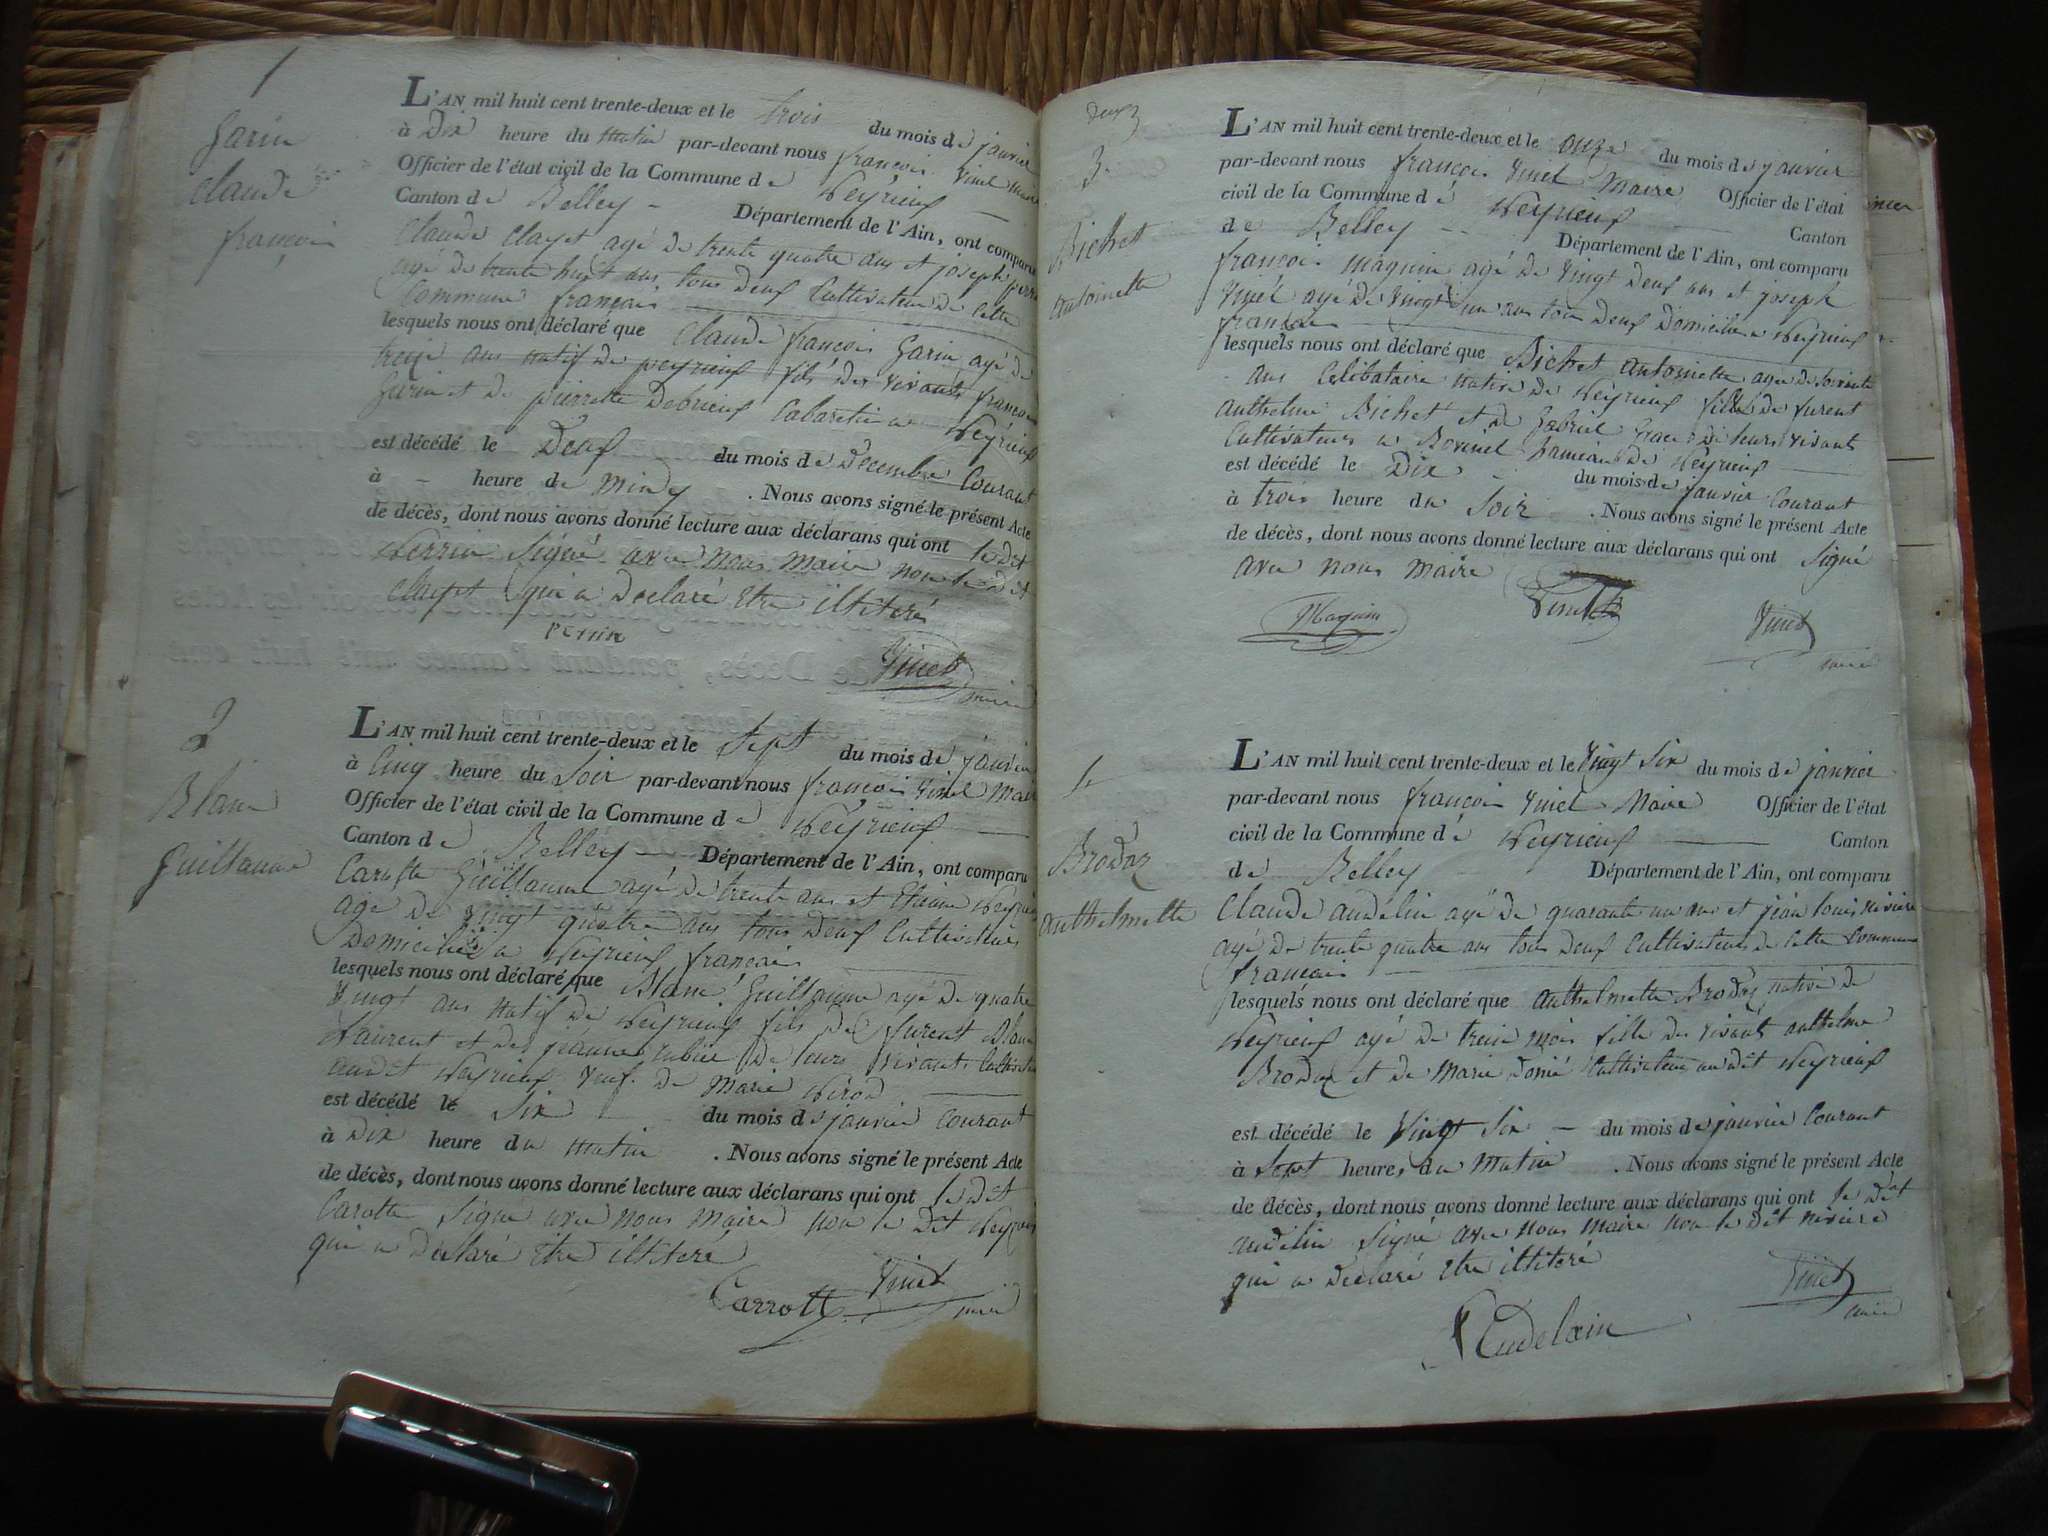 1
Garin
Claude
françois
L'AN mil huit cent trente-deux et le trois du mois de janvier
à Dix heure du matin par-devant nous françois Vinet maire
Officier de l'état civil de la Commune de Peyrieux
Canton de Belley Département de l'Ain, ont comparu
Claude Clayet agé de trente quatre ans et joseph perrin
agé de trente huit ans tous deux Cultivateurs de cette
Commune français
lesquels nous ont déclaré que Claude françois Garin agé de
treize ans natif de peyrieux fils des vivants françois
Garin et de pierrette Cabaretier a Peyrieux
est décédé le Deux du mois de Decembre Courant
à - heure de mindy . Nous avons signé le présent Acte
de décès, dont nous avons donné lecture aux déclarans qui ont le dit
Perrin Signé avec nous maire non le dit
Clayet qui a Declaré Etre illiteré
Perrin
Vinet
maire
2
Blanc
Guillaume
L'AN mil huit cent trente-deux et le Sept du mois de janvier
à Cinq heure du Soir par-devant nous françois Vinet Maire
Officier de l'état civil de la Commune de Peyrieux
Canton de Belley Département de l'Ain, ont comparu
Carotte Guillaume agé de trente ans et Etienne Peyrieux
agé de vingt quatre ans tous deux Cultivateurs
Domicilies a Peyrieux francais
lesquels nous ont déclaré que Blanc Guillaume agé de quatre
Vingt ans natif de Peyrieux fils de furent Blanc
Laurent et des jeanne de leurs vivants Cultivateurs
audit Peyrieux veuf de Marie
est décédé le Six du mois de janvier Courant
à Dix heure du matin . Nous avons signé le présent Acte
de décès, dont nous avons donné lecture aux déclarans qui ont le dit
Carotte Signé avec nous maire non le dit Peyrieux
qui a Declaré Etre illiteré
Carrott
Vinet
maire
deux
3
Bichet
antoinette
L'AN mil huit cent trente-deux et le onze du mois de janvier
par-devant nous françois Vinet Maire Officier de l'état
civil de la Commune dé Peyrieux Canton
de Belley Département de l'Ain, ont comparu
françois Magnin agé de Vingt Deux ans et joseph
Vinet agé de Vingt un ans tous deux Domicilies a Peyrieux
francais
lesquels nous ont déclaré que Bichet antoinette agée de soixante
ans Celibataire native de Peyrieux fille de furent
Anthelme Bichet et de Gabriel de leurs vivants
Cultivateurs a hameau de Peyrieux
est décédé le Dix du mois de janvier Courant
à trois heure du Soir . Nous avons signé le présent Acte
de décès, dont nous avons donné lecture aux déclarans qui ont Signé
avec nous maire
Magnin
Vinet
Vinet
maire
Brodaz
anthelmette
L'AN mil huit cent trente-deux et le Vingt Six du mois de janvier
par-devant nous françois Vinet Maire Officier de l'état
civil de la Commune dé Peyrieux Canton
de Belley Département de l'Ain, ont comparu
Claude audélin agé de quarante un ans et jean louis riviere
agé de trente quatre ans tous deux Cultivateurs de Cette Commune
francais
lesquels nous ont déclaré que anthelmette Brodaz native de
Peyrieux agé de treize mois fille des vivants anthelme
Brodaz et de Marie Cultivateur audit Peyrieux
est décédé le Vingt Six - du mois de janvier Courant
à Sept heures du Matin . Nous avons signé le présent Acte
de décès, dont nous avons donné lecture aux déclarans qui ont le dit
audélin Signé avec nous maire non le dit riviere
qui a Declaré Etre illiteré
Vinet
maire
Audelain